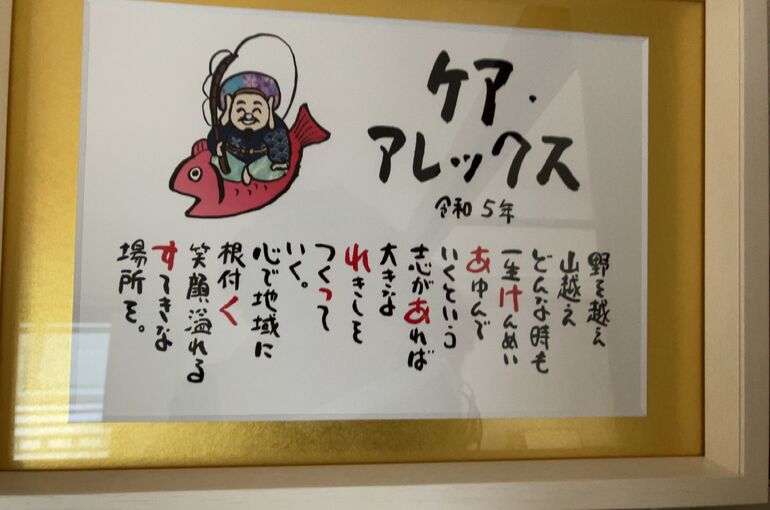 ケア・
アレックス
令和5年
野を越え
山越え
どんな時も
一生けんめい
あゆんで
いくという
志があれば
大きな
れきしを
つくって
いく。
心で地域に
根付く
笑顔溢れる
すてきな
場所を。